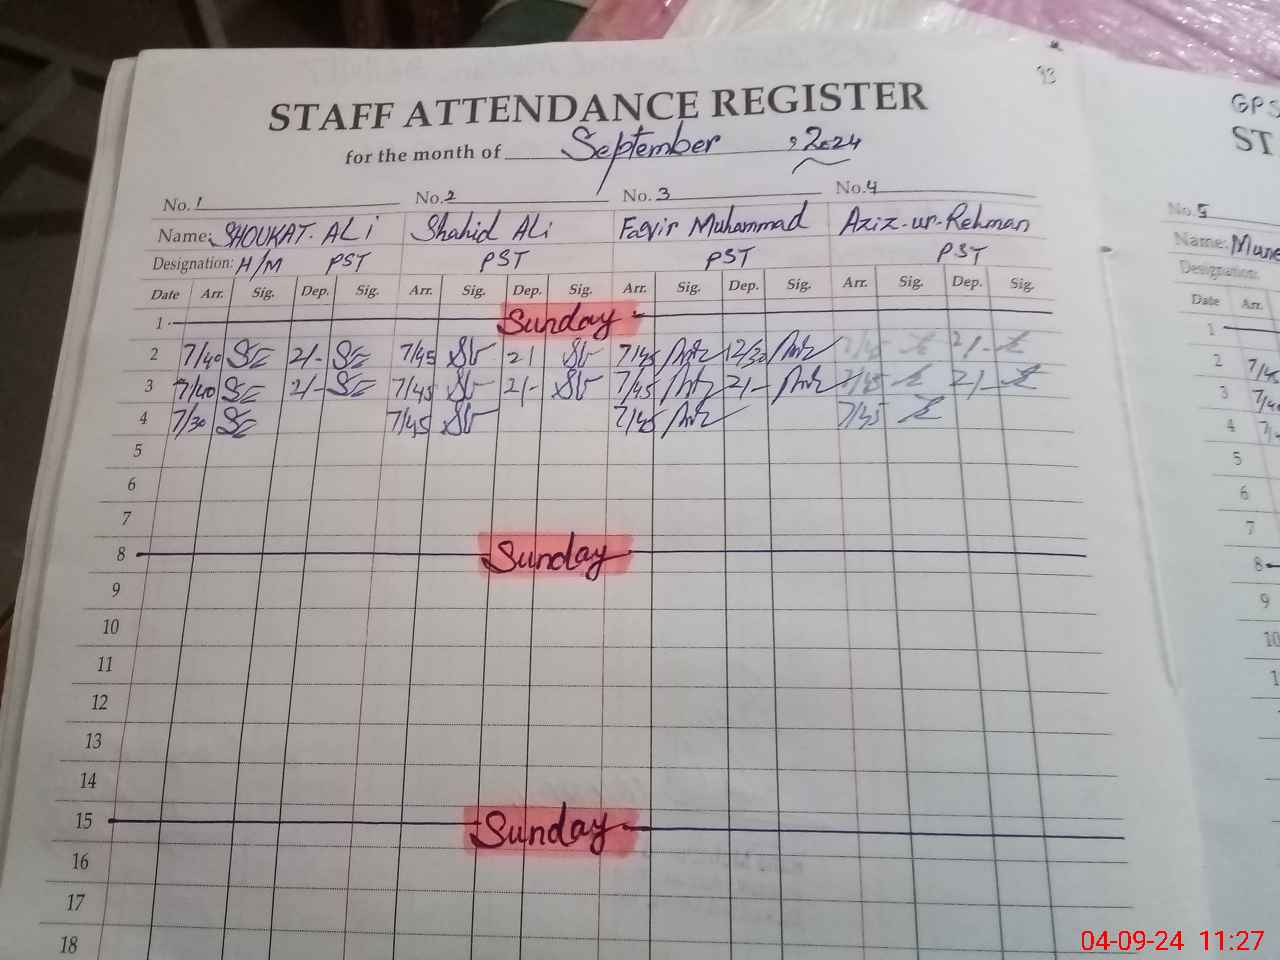 93
STAFF ATTENDANCE REGISTER
for the month of September , 2024
No. 1 No. 2 No. 3 No. 4
Name: SHOUKAT. ALi Shahid ALi Faqir Muhammad Aziz-ur-Rehman
Designation: H/M PST PST PST PST
Date Arr. Sig. Dep. Sig. Arr. Sig. Dep. Sig. Arr. Sig. Dep. Sig. Arr. Sig. Dep. Sig.
1 Sunday
2 7/40 2/- 7/45 2/ 7/45 12/30 7/45 2/-
3 7/40 2/- 7/45 2/- 7/45 2/- 7/45 2/-
4 7/30 7/45 7/45 7/45
5
6
7
8 Sunday
9
10
11
12
13
14
15 Sunday
16
17
18
GPS
ST
No. 5
Name: Mune
Designation:
Date Arr.
1
2
3
4
5
6
7
8
9
10
04-09-24 11:27